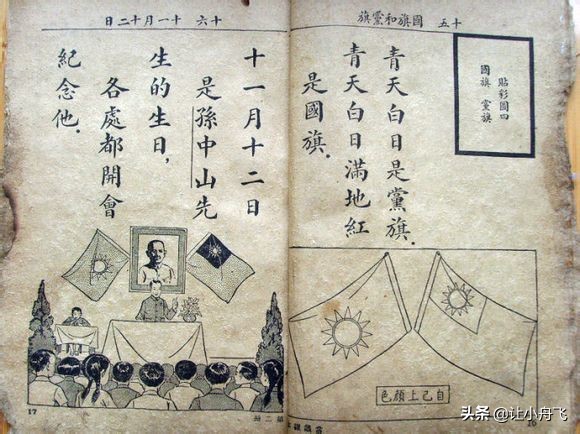 十五 國旗和黨旗
貼彩圖四
國旗 黨旗
青天白日是黨旗．
青天白日滿地紅
是國旗．
自己上顏色
16
十六 十一月十二日
十一月十二日
是孫中山先
生的生日，
各處都開會
紀念他．
17
头条 @让小丹飞